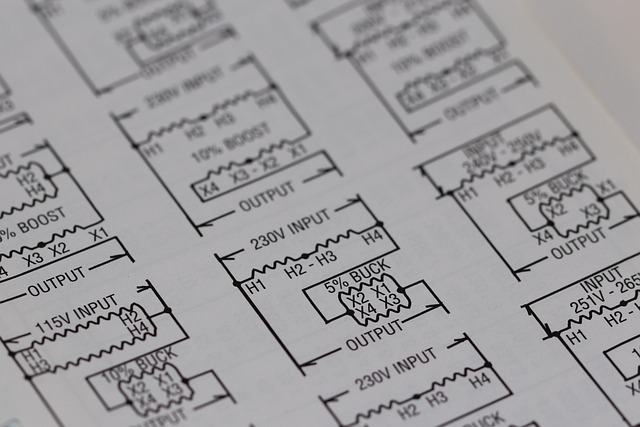 OUTPUT
10% BOOST
OUTPUT
230V INPUT
H1 H2 H3 H4
10% BOOST
X4 X3 - X2 X1
OUTPUT
INPUT
H1 H2 - H3 H4
5% BUCK
X2 X1
X4 X3
OUTPUT
H2
H4
% BOOST
X3 X2 X1
OUTPUT
230V INPUT
H1 H2 - H3 H4
5% BUCK
X2 X1
X4 X3
OUTPUT
INPUT
251V - 265
H1 H2 -
115V INPUT
H1 H2
H3 H4
10% BUCK
X2 X1
X4 X3
OUTPUT
230V INPUT
H2 H3 H4
BUCK